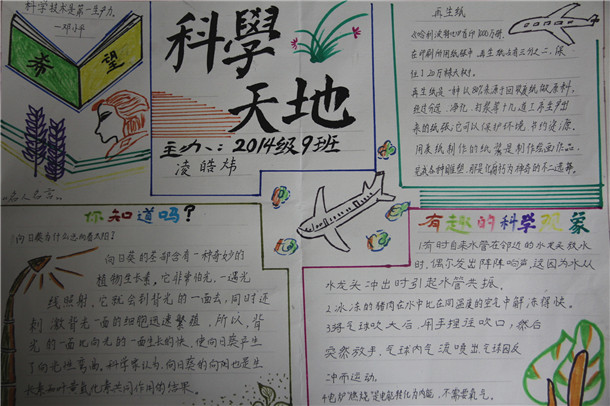 科学技术是第一生产力.
—邓小平
希望
"名人名言"
科學
天地
主办:2014级9班
凌皓炜
再生纸
在印刷所用纸张中,再生纸占有三分之二,保
住了20万棵大树.
再生纸是一种以80%来源于回收废纸做原料,
来的纸张,它可以保护环境,节约资源.
用来纸制作的纸浆是制作绘画作品、
你知道吗?
向日葵为什么总向着太阳?
向日葵的茎部含有一种奇妙的
植物生长素,它非常怕光,一遇光
线照射,它就会到背光的一面去,同时还
刺激背光一面的细胞迅速繁殖,所以,背
光的一面比向光的一面生长的快,使向日葵产生
了向光性弯曲,科学家认为,向日葵的向阳也是生
长素和叶黄氧化素共同作用的结果.
有趣的科学现象
1.有时自来水管在邻近的水龙头放水
时,偶尔发出阵阵响声,这因为水从
水龙头冲出时引起水管共振.
2.冰冻的猪肉在水中比在同温度的空气中解冻得快.
3.将气球吹大后,用手捏住吹口,然后
突然放手,气球内气流喷出,气球因反
冲而运动.
4电炉"燃烧"是电能转化为内能,不需要氧气.